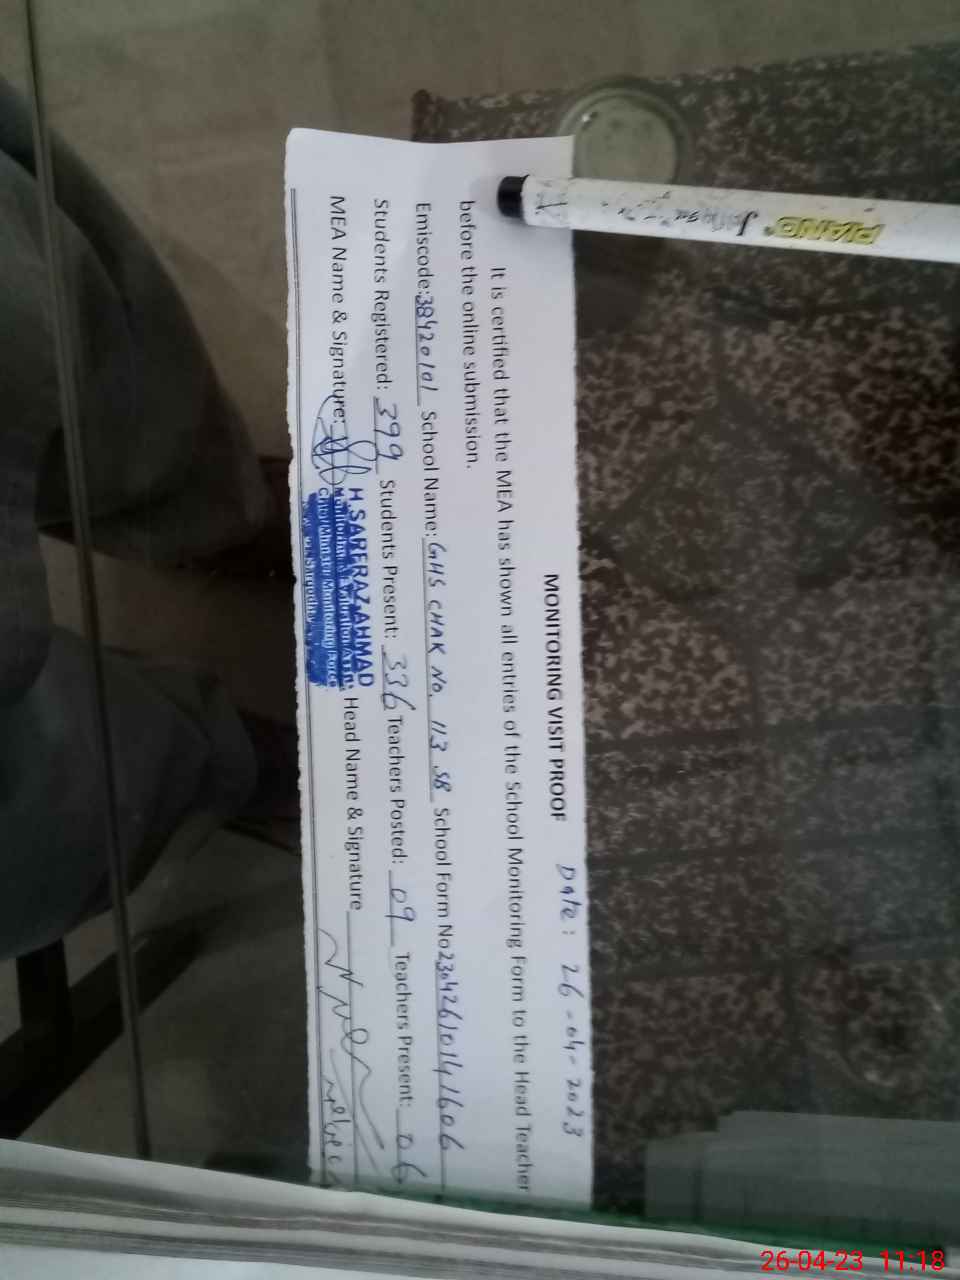 MONITORING VISIT PROOF Date: 26-04-2023
It is certified that the MEA has shown all entries of the School Monitoring Form to the Head Teacher
before the online submission.
Emiscode:38420101 School Name: GHS CHAK No. 113 SB School Form No 23042610141606
Students Registered: 399 Students Present: 336 Teachers Posted: 09 Teachers Present: 06
MEA Name & Signature: Head Name & Signature
H.SARFRAZ AHMAD
Monitoring & Evaluation Asstt:
Chief Minister Monitoring Force
Sargodha
PIANO
26-04-23 11:18